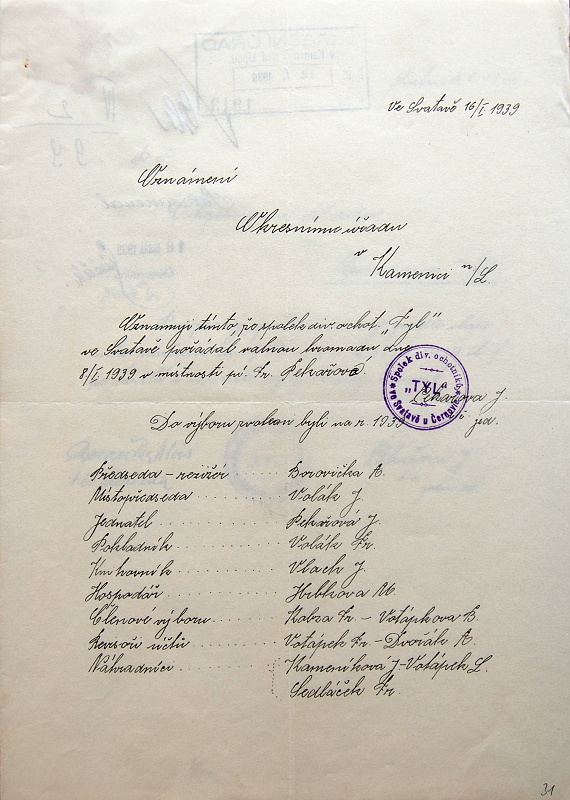 Ve Svatavě 16/I. 1939
Oznámení
Okresnímu úřadu
v
Kamenici n/L.
Oznamuji tímto, že spolek div. ochot. „Tyl"
ve Svatavě pořádal valnou hromadu dne
8/I. 1939 v místnosti pí. Fr. Pekařové.
Spolek div. ochotníků
„TYL"
ve Svatavě u Černovic
Pekařova J.
jed.
Do výboru byli na r. 1939
Předseda - režisér Borovička A.
Místopředseda Volák J.
Jednatel Pekařová J.
Pokladník Volák Fr.
Knihovník Vlach J.
Hospodář Hrbkova M.
Členové výboru Kobza Fr. - Votápkova B.
Revisoři účtů Votápek Fr - Dvořák A.
Náhradníci Kameníkova J - Votápek L.
Sedláček Fr.
31